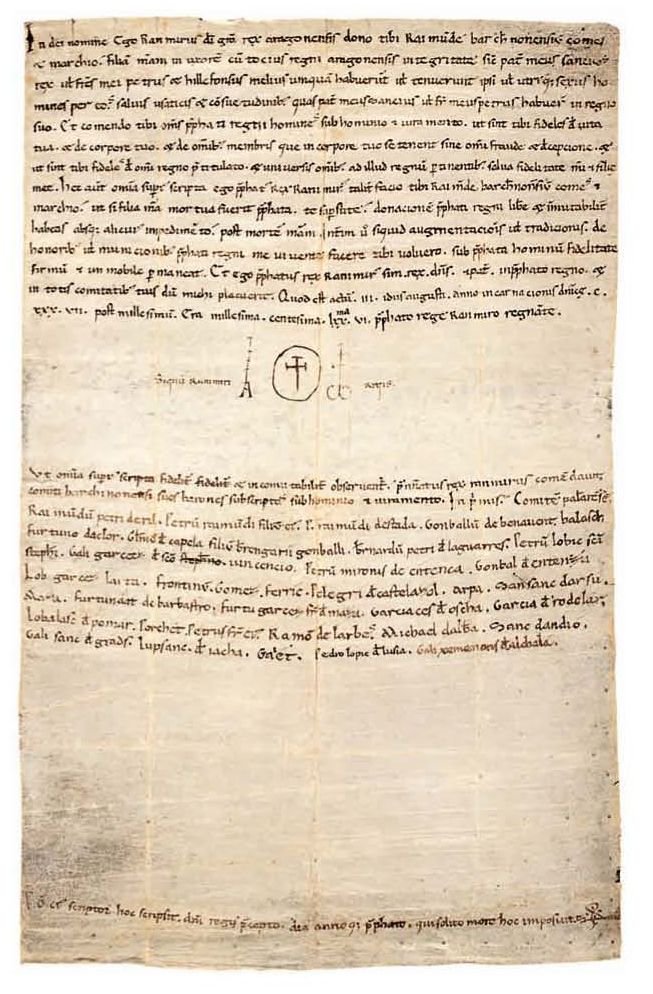 In dei nomine. Ego Ranimirus di gra rex aragonensis dono tibi Raimunde barchinonensis comes
& marchio. filiam meam in uxore cu tocius regni aragonensis integritate. sic pat meus sancius
rex ul frs mei petrus & hillefonsus melius unquam habuerut ul tenuerunt ipsi ul utriusq sexus ho
mines per eos. salvis usaticis & csuetudinib quas pat meus sancius ul fr meus petrus habuer in regno
suo. Et comendo tibi oms pphati regni homines sub hominio & iuramento. ut sint tibi fideles d vita
tua. & de corpore tuo. & de omib membris que in corpore tuo se tenent sine omi fraude & decepcione. &
ut sint tibi fideles d omi regno ptitulato. & universis omib ad illud regnu ptinentib. salva fidelitate mi & filie
mee. Hec aut omia supra scripta ego pphat Rex Ranimir talit facio tibi Raimude barchinonsiu comes &
marchio. ut si filia mea mortua fuerit pphata. te supstite. donacione pphati regni libe & inmutabilit
habeas absq alicuius impedimeto. post morte meam. Intim u siquid augmentacionis ul tradicionis. de
honorib ul municionib pphati regni me vivente facere tibi voluero. sub pphata hominu fidelitate
firmu & inmobile pmaneat. Et ego pphatus rex Ranimir sim rex. dns. & pat. in pphato regno. &
in totis comitatib tuis du michi placuerit. Quod est actu. iii. idus augusti. anno incarnacionis dnice. c.
xxx. vii. post millesimu. Era millesima. centesima. lxx ma. v. pphato rege Ranimiro regnate.
Signu Ranimiri regis.
Ut omia supra scripta fidelit fidelit & incomutabilit observent. pnnatus rex ranimirus comedavit
comiti barchinonensi suos barones subscriptos sub hominio & iuramento. In pmis. Comite palarese.
Raimudu petri deril. Petru raimudi filiu ei. P. raimudi destada. Gonballu de benavent. balasch
furtunio daclor. Glmo d capela filiu brengarii gonballi. bernardu petri d laguarres. Petru lobic sca
stephi. Gali garcez d sco stephano vincencio. Petru mironis de entenca. Gonbal d entenza
Lob garcez laita. frontinu. Gomez. ferric. Pelegri d castelazol. arpa. Sansanc darsu.
Maza. furtunat de barbastro. furtu garcez fr d maza. Garcia ces d oscha. Garcia d rodelar.
lobalasc d pomar. Porchet. Petrus fr ei. Ramon de larbes. Michael dalba. Sanc dandio.
Gali sanc d grads. lupsanc. d iacha. Galet. Pedro lopic d lusia. Gali xemenons d alchala.
Poncius scriptor hoc scripsit. dni regis pcepto. dia annoq pphato. qui solito more hoc imposuit